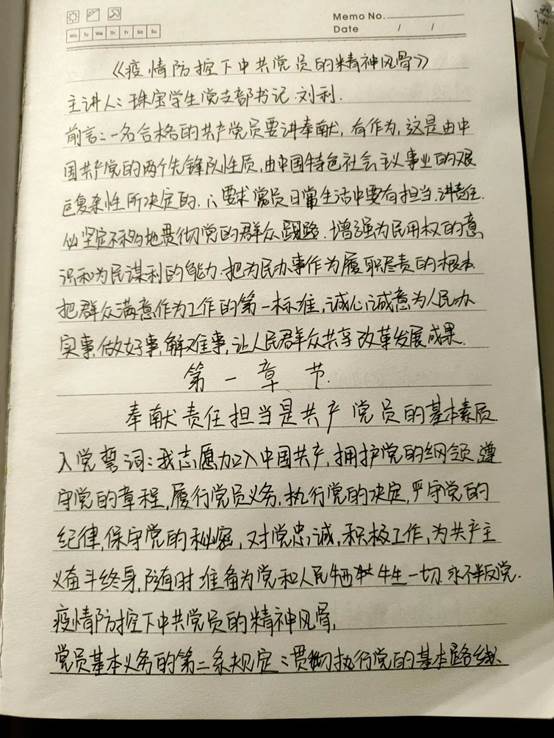 Memo No.
Date / /
Mo Tu We Th Fr Sa Su
《疫情防控下中共党员的精神风骨》
主讲人：珠宝学生党支部书记 刘利.
前言：一名合格的共产党员要讲奉献，有作为，这是由中
国共产党的两个先锋队性质，由中国特色社会主义事业的艰
巨复杂性所决定的.八要求党员日常生活中要有担当.讲责任.
必坚定不移地贯彻党的群众路线.增强为民用权的意
识和为民谋利的能力.把为民办事作为履职尽责的根本
把群众满意作为工作的第一标准，诚心诚意为人民办
实事，做好事，解难事，让人民群众共享改革发展成果.
第一章节.
奉献责任担当是共产党员的基本素质
入党誓词：我志愿加入中国共产，拥护党的纲领.遵
守党的章程，履行党员义务，执行党的决定，严守党的
纪律，保守党的秘密，对党忠诚，积极工作，为共产主
义奋斗终身，随时准备为党和人民牺牲一切.永不叛党.
疫情防控下中共党员的精神风骨，
党员基本义务的第二条规定：贯彻执行党的基本路线、